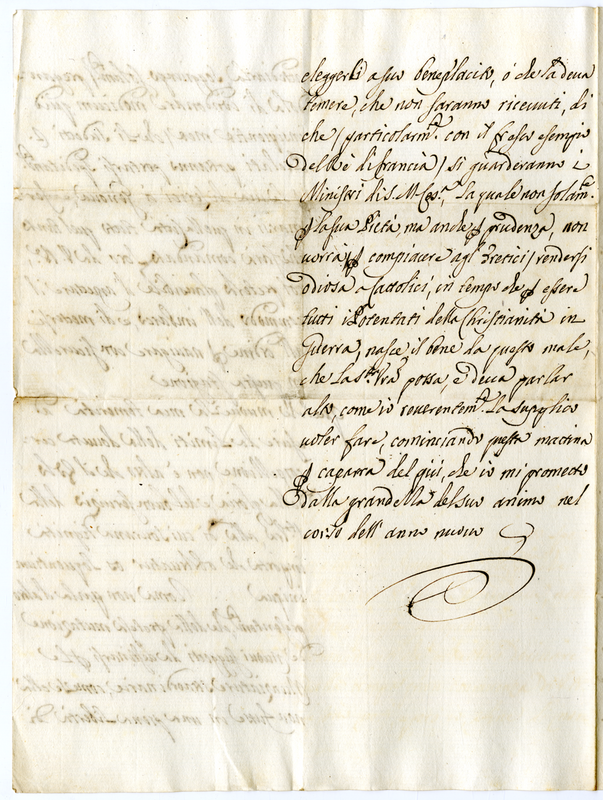 eleggerli a suo beneplacito, ó che la deva
temere, che non saranno ricevuti, di
che / particolarm.te con il fresco esempio
del Rè di francia / si guarderanno i
Ministri di S. M. Ces.a la quale non solam.te
ꝑ la sua Pietá ma anche ꝑ prudenza, non
vorrà ꝑ compiacere agl'Eretici / rendersi
odiosa a Cattolici, in tempo che ꝑ essere
tutti i Potentati della Christianità in
Guerra, nasce il bene da questo male,
che la S.tà V.ra possa, e deva parlar
alto, come io reverentem.te la supplico
voler fare, cominciando questa mattina
ꝑ caparra del più, che io mi prometto
dalla grandezza del suo animo nel
corso dell'anno nuovo